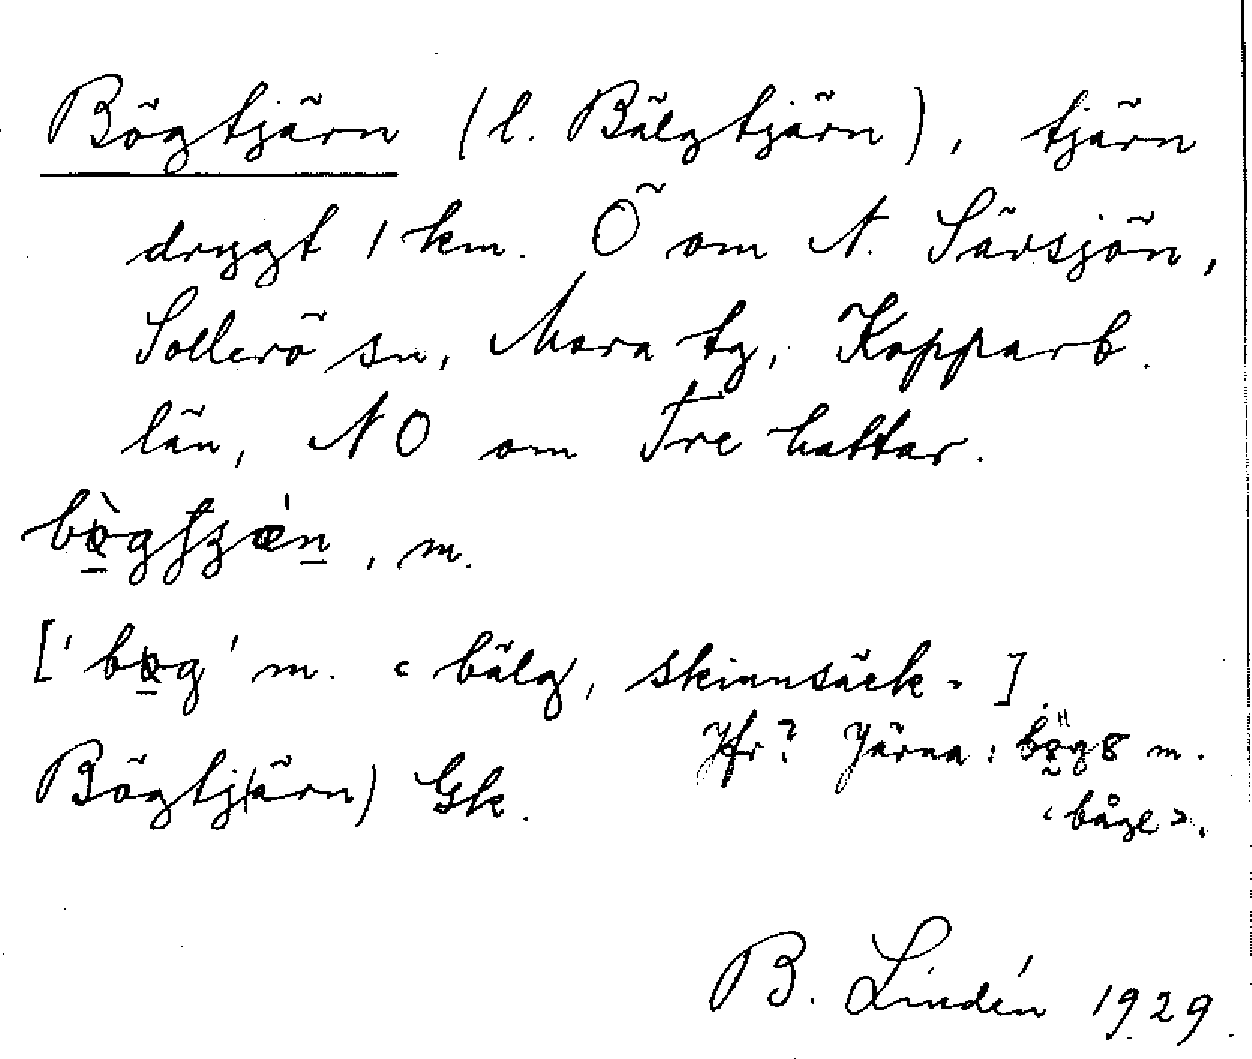 Bögtjärn (l. Bälgtjärn), tjärn
drygt 1 km. Ö om N. Särsjön,
Sollerö sn, Mora tg, Kopparb.
län, NO om Tre hattar.
, m.
['bøg' m. < bälg, skinnsäck > ].
Jfr? Järna: m.
Bögtj(ärn) Gk.
< båge >.
B. Lindén 1929.